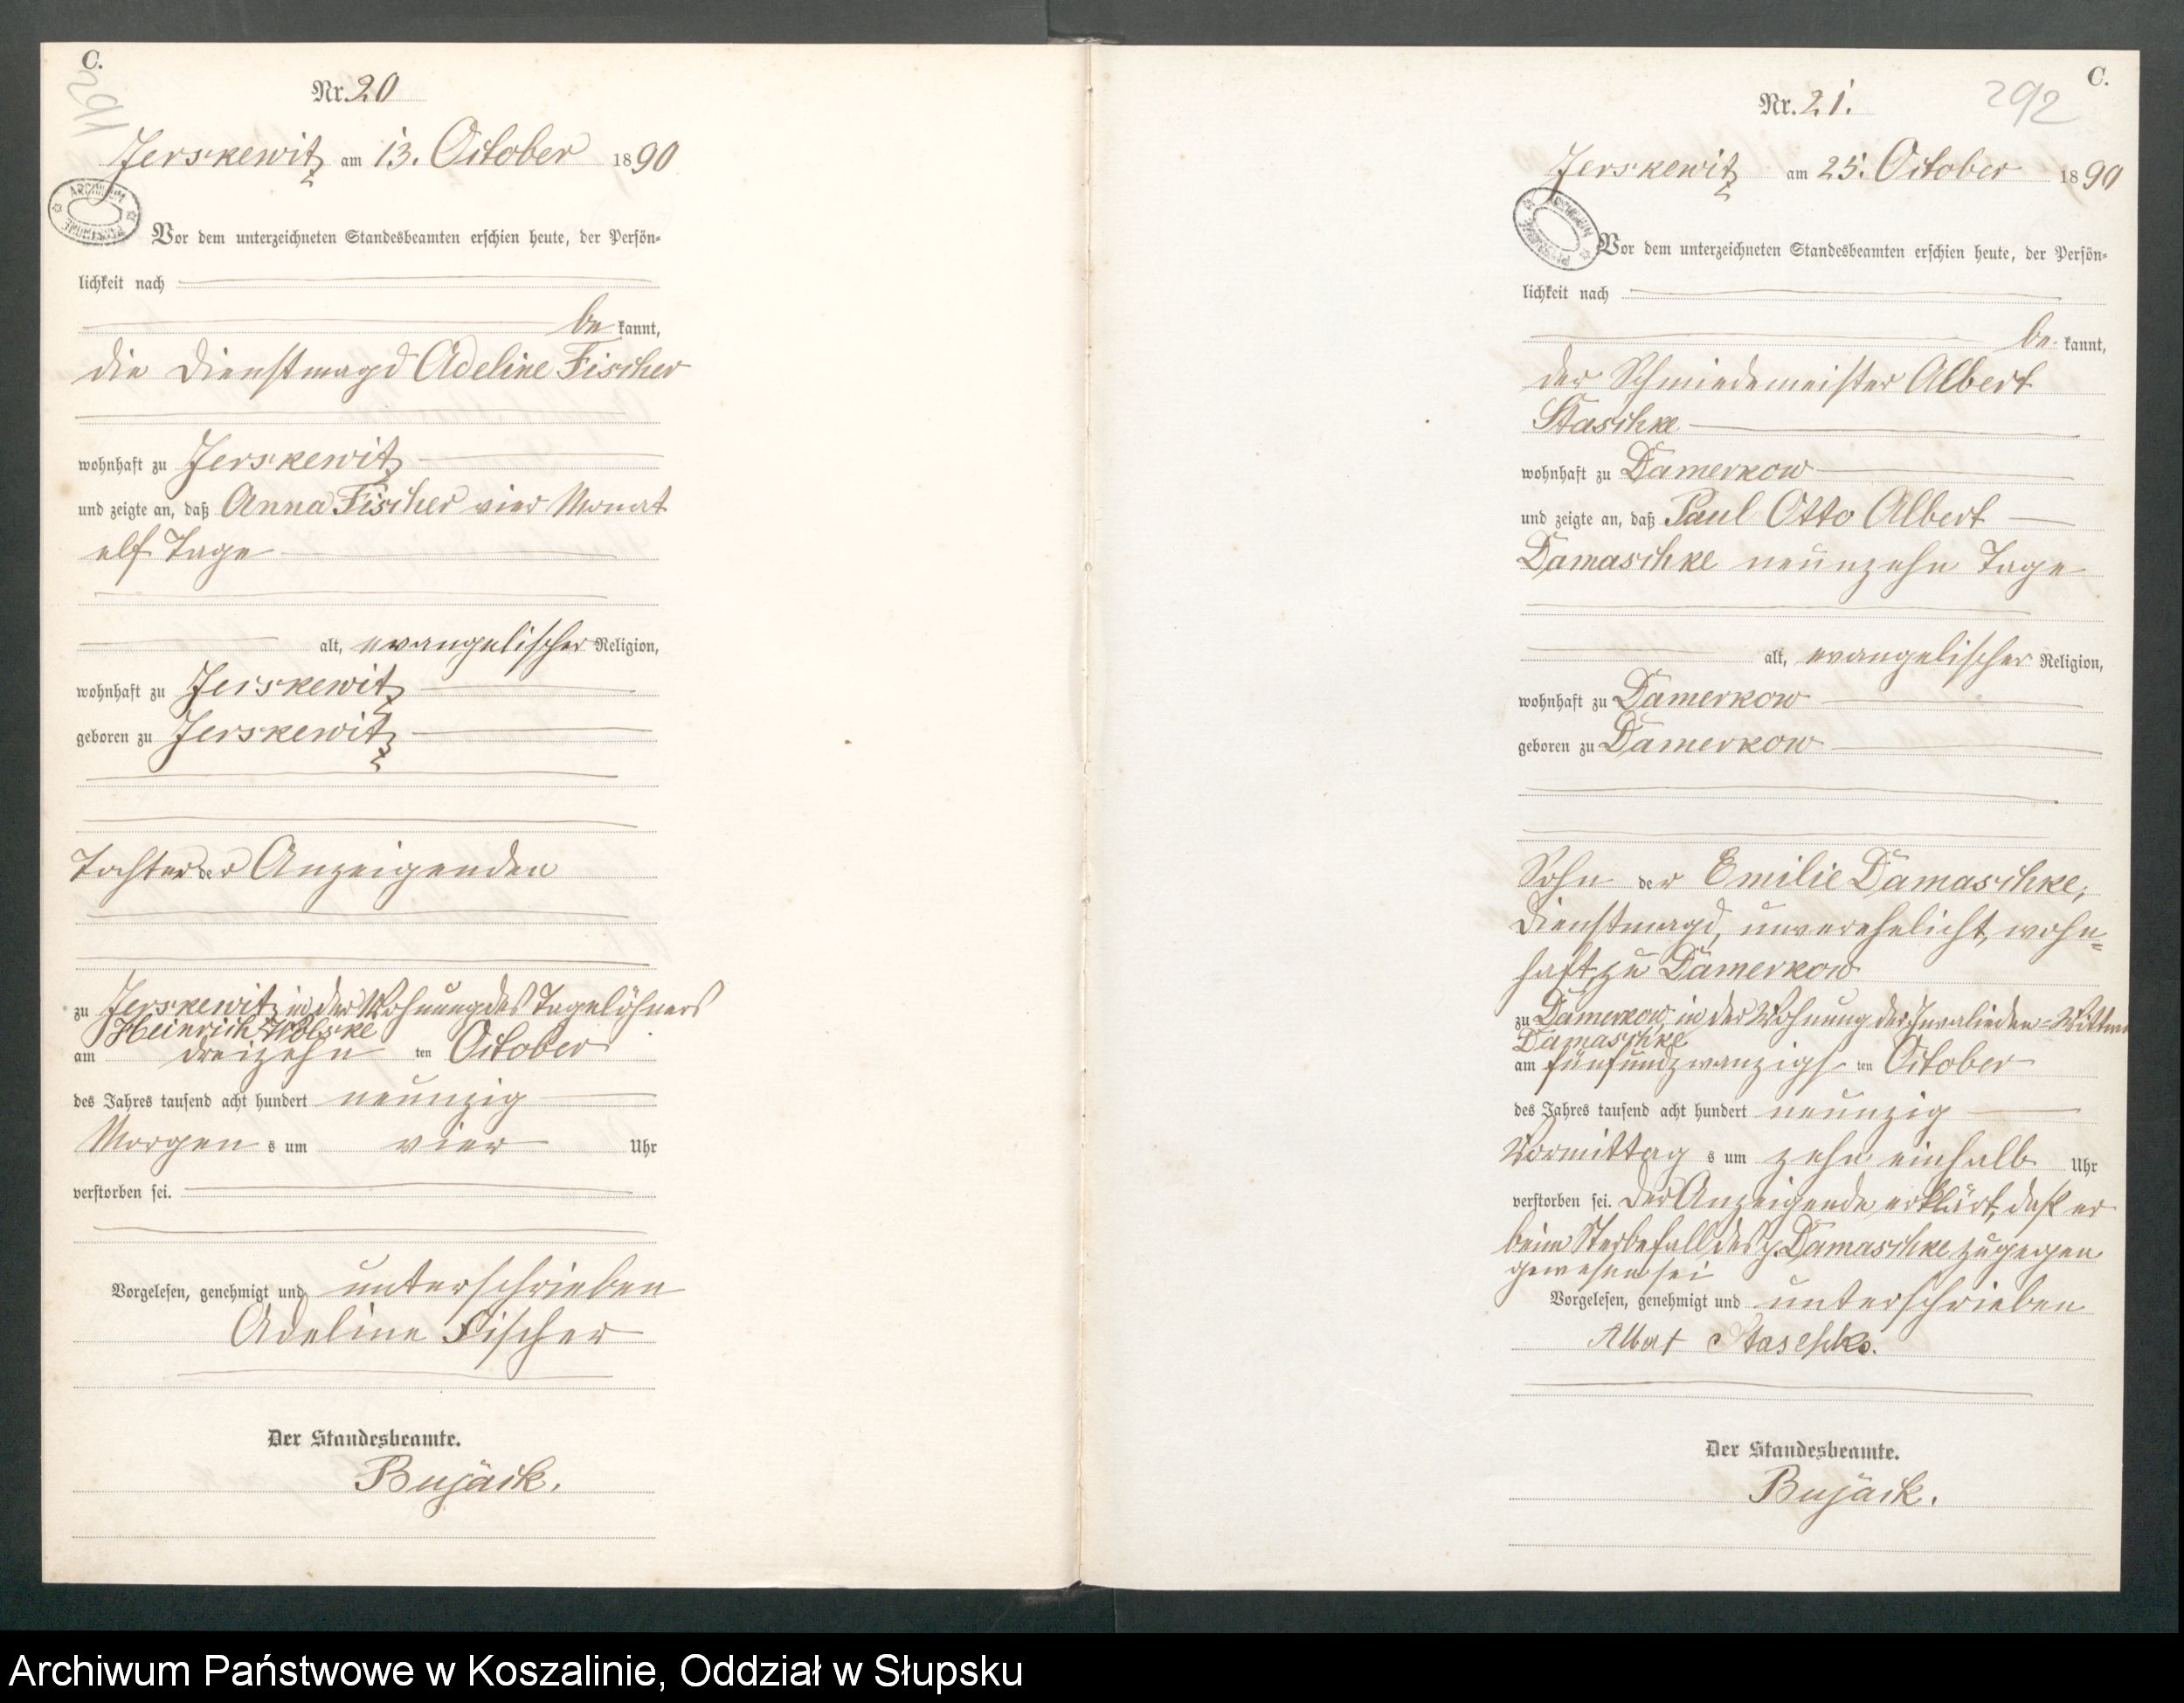 C.
291
Nr. 20
Jerskewitz am 13. October 1890
ARCHIWUM PAŃSTWOWE
Vor dem unterzeichneten Standesbeamten erschien heute, der Persön-
lichkeit nach
be kannt,
die Dienstmagd Adeline Fischer
wohnhaft zu Jerskewitz
und zeigte an, daß Anna Fischer vier Monat
elf Tage
alt, evangelischer Religion,
wohnhaft zu Jerskewitz
geboren zu Jerskewitz
Tochter der Anzeigenden
zu Jerskewitz in der Wohnung des Tagelöhners
Heinrich
am dreizehn ten October
des Jahres tausend acht hundert neunzig
Morgen s um vier Uhr
verstorben sei.
Vorgelesen, genehmigt und unterschrieben
Adeline Fischer
Der Standesbeamte.
Bujack.
C.
292
Nr. 21.
Jerskewitz am 25. October 1890
ARCHIWUM PAŃSTWOWE
Vor dem unterzeichneten Standesbeamten erschien heute, der Persön-
lichkeit nach
be kannt,
der Schmiedemeister Albert
Staschke
wohnhaft zu Damerkow
und zeigte an, daß Paul Otto Albert
Damaschke neunzehn Tage
alt, evangelischer Religion,
wohnhaft zu Damerkow
geboren zu Damerkow
Sohn der Emilie Damaschke,
Dienstmagd, unverehelicht, wohn=
haft zu Damerkow
zu Damerkow, in der Wohnung der Invalieden=Wittwe
Damaschke
am fünfundzwanzigs ten October
des Jahres tausend acht hundert neunzig
Vormittag s um zehn einhalb Uhr
verstorben sei. Der Anzeigende erklärt, daß er
beim Sterbefall des p. Damaschke zugegen
gewesen sei
Vorgelesen, genehmigt und unterschrieben
Albert Staschke.
Der Standesbeamte.
Bujack.
Archiwum Państwowe w Koszalinie, Oddział w Słupsku